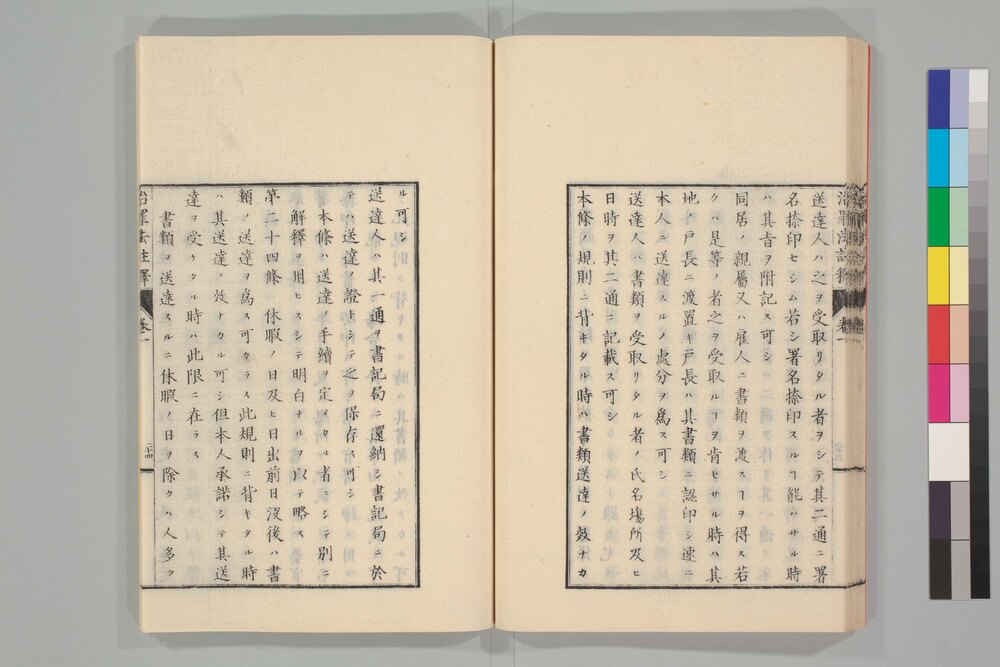 送達人ハ之ヲ受取リタル者ヲシテ其二通ニ署
名捺印セシム若シ署名捺印スルヿ能ハサル時
ハ其旨ヲ附記ス可シ
同居ノ親屬又ハ雇人ニ書類ヲ渡スヿヲ得ス若
クハ是等ノ者之ヲ受取ルヿヲ肯セサル時ハ其
地ノ戸長ニ渡置キ戸長ハ其書類ニ認印シ速ニ
本人ニ送達スルノ處分ヲ爲ス可シ
送達人ハ書類ヲ受取リタル者ノ氏名塲所及ヒ
日時ヲ其二通ニ記載ス可シ
本條ノ規則ニ背キタル時ハ書類送達ノ效ナカ
ル可シ
送達人ハ其一通ヲ書記局ニ還納シ書記局ニ於
テハ送達ノ證トシテ之ヲ保存ス可シ
本條ハ送達ノ手續ヲ定メタル者ニシテ別ニ
解釋ヲ用ヒスシテ明白ナルヲ以テ略ス
第二十四條 休暇ノ日及ヒ日出前日沒後ハ書
類ノ送達ヲ爲ス可カラス此規則ニ背キタル時
ハ其送達ノ效ナカル可シ但本人承諾シテ其送
達ヲ受ケタル時ハ此限ニ在ラス
書類ヲ送達スルニ休暇ノ日ヲ除クハ人多ク
治罪法註釋 卷一 二十四